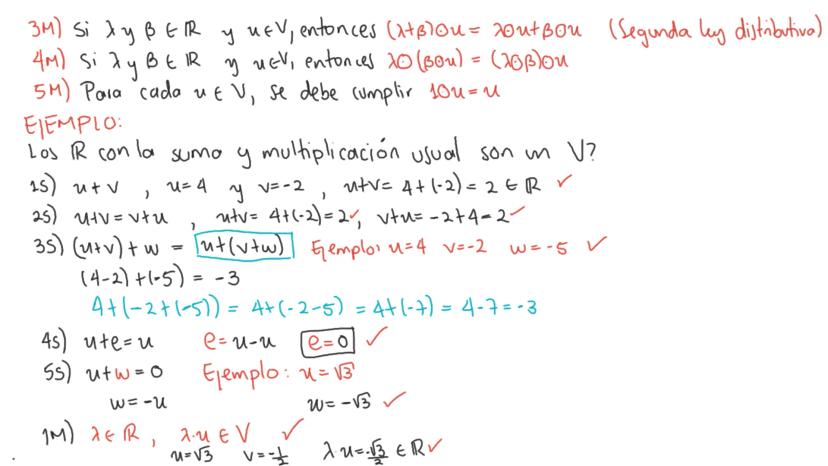 3M) Si λ y β ∈ ℝ y u ∈ V, entonces (λ+β)⊙u = λ⊙u+β⊙u (Segunda ley distributiva)
4M) Si λ y β ∈ ℝ y u ∈ V, entonces λ⊙(β⊙u) = (λ⊙β)⊙u
5M) Para cada u ∈ V, se debe cumplir 1⊙u = u
EJEMPLO:
Los ℝ con la suma y multiplicación usual son un V?
1S) u+v , u=4 y v=-2 , u+v= 4+(-2)=2 ∈ ℝ ✓
2S) u+v=v+u , u+v= 4+(-2)=2✓, v+u=-2+4=2✓
3S) (u+v)+w = u+(v+w) Ejemplo: u=4 v=-2 w=-5 ✓
(4-2)+(-5) = -3
4+(-2+(-5)) = 4+(-2-5) = 4+(-7) = 4-7=-3
4S) u+e=u e=u-u e=0 ✓
5S) u+w=0 Ejemplo: u=√3
w=-u w=-√3 ✓
1M) λ∈ℝ , λ·u ∈ V ✓
u=√3 v=-1/2 λ·u=-√3/2 ∈ ℝ ✓